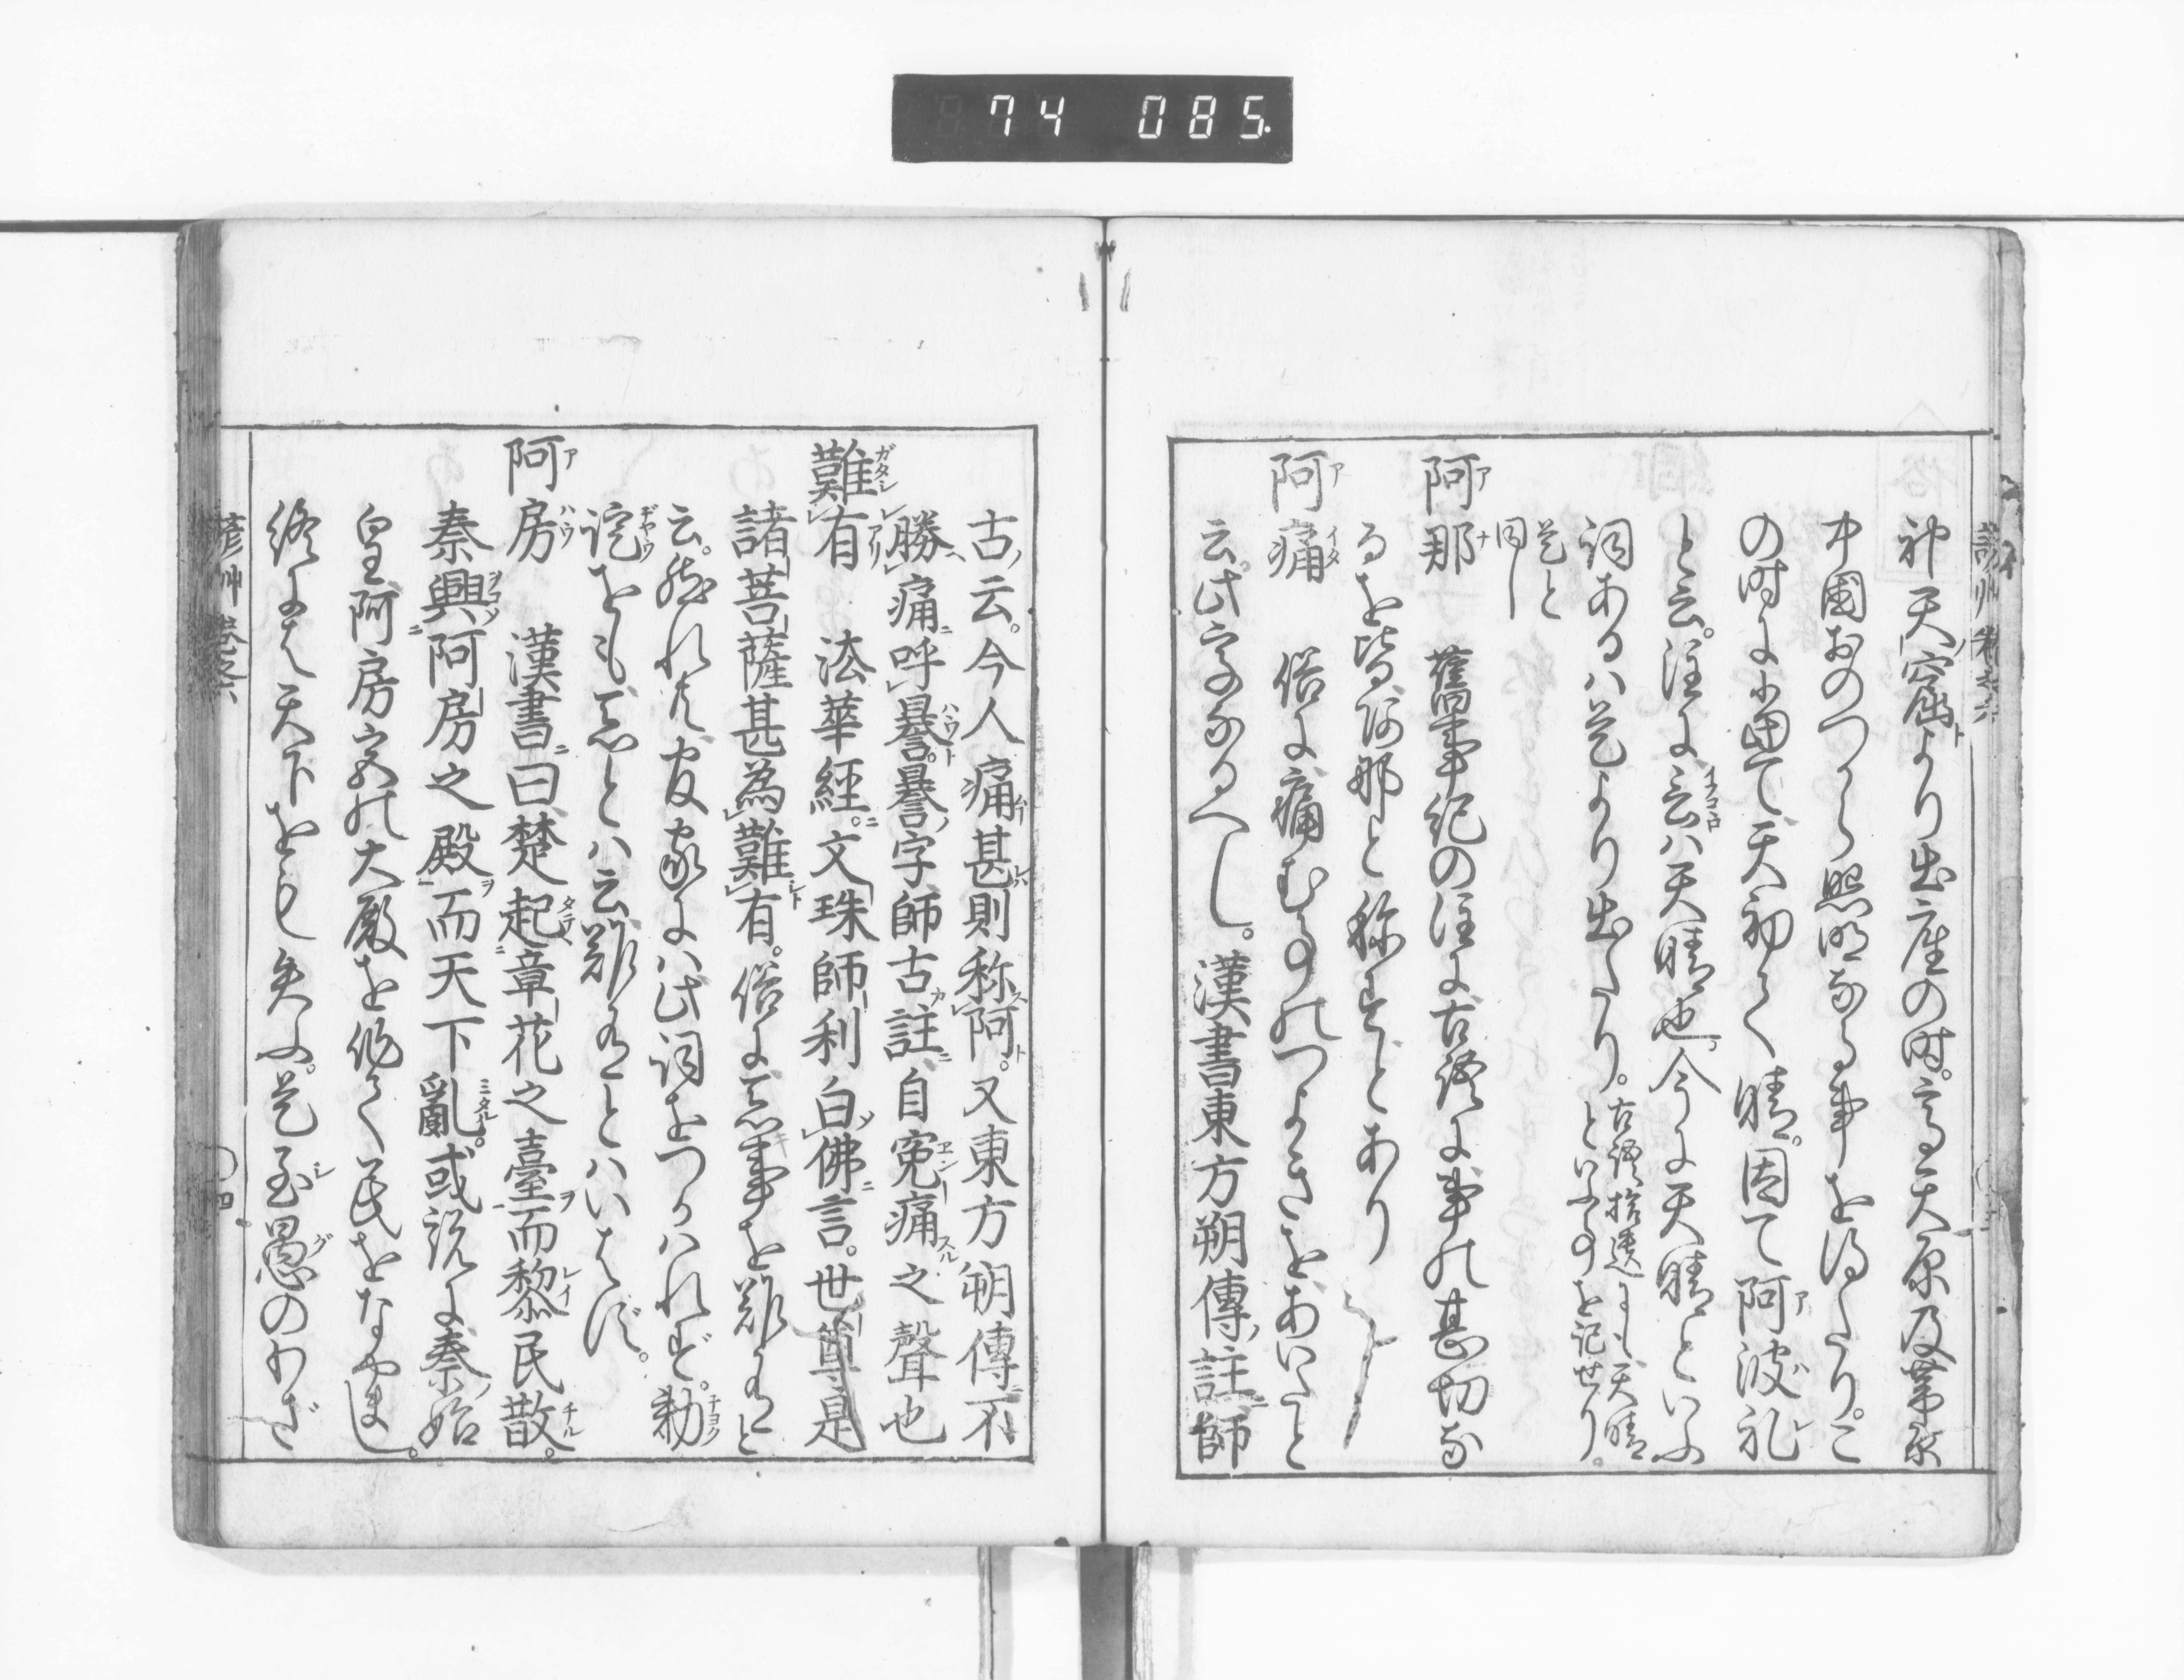 74 085
神天窟より出座の時。高天原及葦原
中國おのつから照明なる事を得たり。こ
の時に当て天初て晴。因て阿波礼
と云。注に言ハ天晴也。今に天晴といふ
詞あるハ是より出たり。古語拾遺にも天晴といふ事を記せり。
是と同し
阿那 舊事紀の注に古語に事の甚切な
るを皆阿那と称すとあり
阿痛 俗に痛む事のつよきをあいたと
云。此字なるへし。漢書東方朔傳註師
古云。今人痛甚則称阿。又東方朔傳不
勝痛呼謈。謈字師古註自寃痛之聲也
難有 法華經文珠師利白佛言。世尊是
諸菩薩甚為難有。俗に悪事を難有と
云。然れ共官家にハ此詞をつかハれず。勅
諚をも悪とハ云難有とハいはず。
阿房 漢書曰楚起章花之臺而黎民散。
秦興阿房之殿而天下亂。或説に秦始
皇阿房宮の大殿を作て民をなやまし。
終には天下をも失ふ。是至愚のわざ
諺艸 巻之六 四